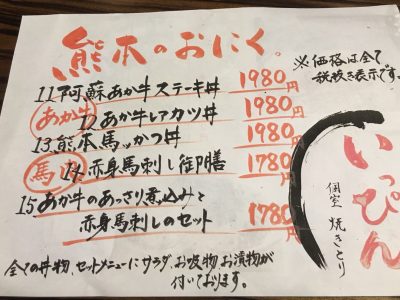 熊本のおにく。
※価格は全て
税抜き表示です。
11 阿蘇あか牛ステーキ丼 1980円
あか牛
12 あか牛レアカツ丼 1980円
13 熊本馬っかつ丼 1980円
馬肉
14 赤身馬刺し御膳 1780円
15 あか牛のあっさり煮込みと
赤身馬刺しのセット 1780円
全ての丼物、セットメニューにサラダ、お吸物、お漬物が
付いております。
いっぴん
個室 焼きとり